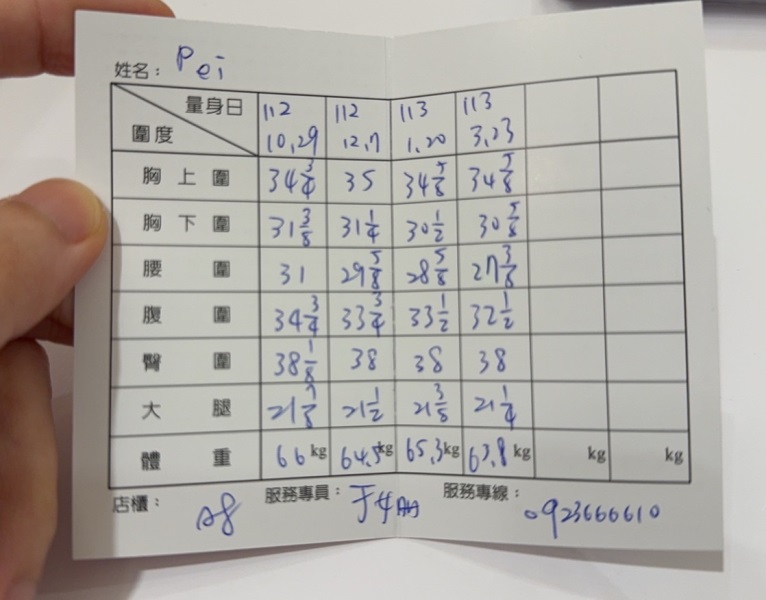 姓名： Pei
量身日 112 112 113 113
圍度 10,29 12,7 1,20 3,23
胸上圍 34 3/4 35 34 5/8 34 5/8
胸下圍 31 3/8 31 1/4 30 1/2 30 5/8
腰圍 31 29 5/8 28 5/8 27 3/8
腹圍 34 3/4 33 3/4 33 1/2 32 1/2
臀圍 38 1/8 38 38 38
大腿 21 7/8 21 1/2 21 3/8 21 1/4
體重 66 kg 64.5 kg 65.3 kg 63.8 kg kg kg
店櫃： A8 服務專員： 服務專線： 0923666610